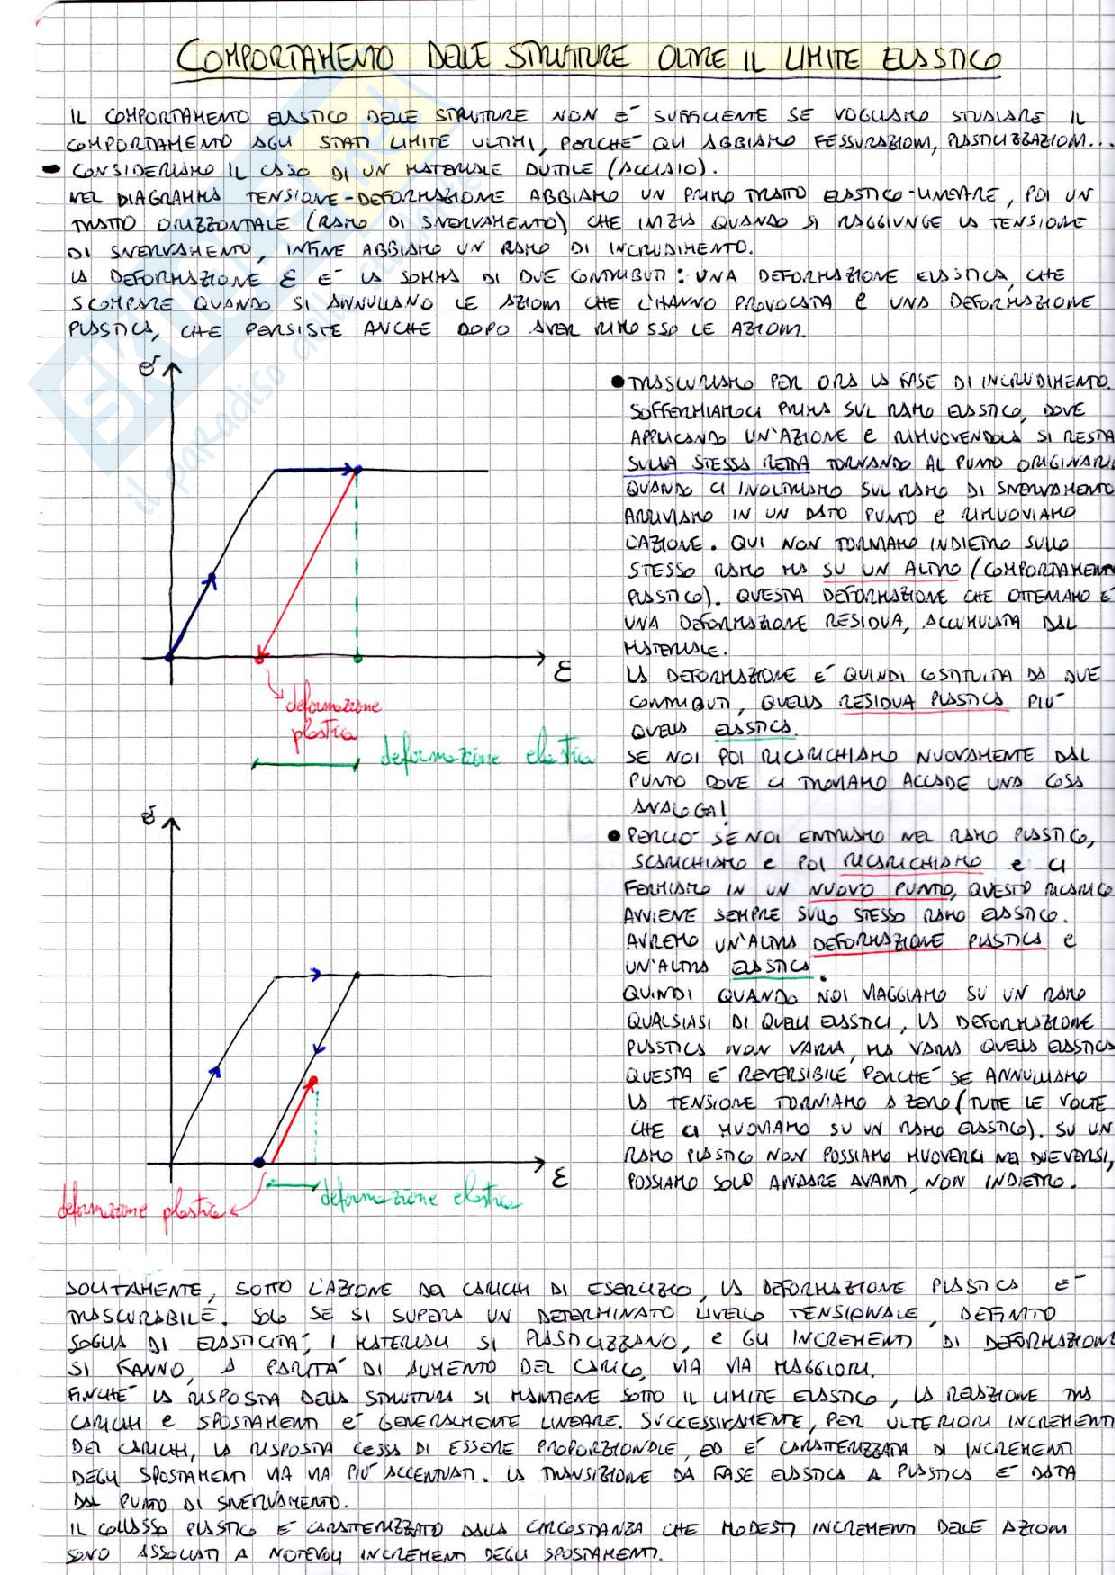 COMPORTAMENTO DELLE STRUTTURE OLTRE IL LIMITE ELASTICO
IL COMPORTAMENTO ELASTICO DELLE STRUTTURE NON E' SUFFICIENTE SE VOGLIAMO STUDIARE IL
COMPORTAMENTO AGLI STATI LIMITE ULTIMI, PERCHE' QUI ABBIAMO FESSURAZIONI, PLASTICIZZAZIONI...
• CONSIDERIAMO IL CASO DI UN MATERIALE DUTTILE (ACCIAIO).
NEL DIAGRAMMA TENSIONE-DEFORMAZIONE ABBIAMO UN PRIMO TRATTO ELASTICO-LINEARE, POI UN
TRATTO ORIZZONTALE (RAMO DI SNERVAMENTO) CHE INIZIA QUANDO SI RAGGIUNGE LA TENSIONE
DI SNERVAMENTO, INFINE ABBIAMO UN RAMO DI INCRUDIMENTO.
LA DEFORMAZIONE ε E' LA SOMMA DI DUE CONTRIBUTI: UNA DEFORMAZIONE ELASTICA, CHE
SCOMPARE QUANDO SI ANNULLANO LE AZIONI CHE L'HANNO PROVOCATA E UNA DEFORMAZIONE
PLASTICA, CHE PERSISTE ANCHE DOPO AVER RIMOSSO LE AZIONI.
σ
ε
deformazione
plastica
deformazione elastica
• TRASCURIAMO PER ORA LA FASE DI INCRUDIMENTO.
SOFFERMIAMOCI PRIMA SUL RAMO ELASTICO, DOVE
APPLICANDO UN'AZIONE E RIMUOVENDOLA SI RESTA
SULLA STESSA RETTA TORNANDO AL PUNTO ORIGINARIO
QUANDO CI INOLTRIAMO SUL RAMO DI SNERVAMENTO
ARRIVIAMO IN UN DATO PUNTO E RIMUOVIAMO
L'AZIONE. QUI NON TORNIAMO INDIETRO SULLO
STESSO RAMO MA SU UN ALTRO (COMPORTAMENTO
PLASTICO). QUESTA DEFORMAZIONE CHE OTTENIAMO E'
UNA DEFORMAZIONE RESIDUA, ACCUMULATA DAL
MATERIALE.
LA DEFORMAZIONE E' QUINDI COSTITUITA DA DUE
CONTRIBUTI, QUELLA RESIDUA PLASTICA PIU'
QUELLA ELASTICA.
SE NOI POI RICARICHIAMO NUOVAMENTE DAL
PUNTO DOVE CI TROVIAMO ACCADE UNA COSA
ANALOGA!
σ
ε
deformazione plastica
deformazione elastica
• PERCIO' SE NOI ENTRIAMO NEL RAMO PLASTICO,
SCARICHIAMO E POI RICARICHIAMO E CI
FERMIAMO IN UN NUOVO PUNTO, QUESTO RICARICO
AVVIENE SEMPRE SULLO STESSO RAMO ELASTICO.
AVREMO UN'ALTRA DEFORMAZIONE PLASTICA E
UN'ALTRA ELASTICA.
QUINDI QUANDO NOI VIAGGIAMO SU UN RAMO
QUALSIASI DI QUELLI ELASTICI, LA DEFORMAZIONE
PLASTICA NON VARIA, MA VARIA QUELLA ELASTICA
QUESTA E' REVERSIBILE PERCHE' SE ANNULLIAMO
LA TENSIONE TORNIAMO A ZERO (TUTTE LE VOLTE
CHE CI MUOVIAMO SU UN RAMO ELASTICO). SU UN
RAMO PLASTICO NON POSSIAMO MUOVERCI NEI DUE VERSI,
POSSIAMO SOLO ANDARE AVANTI, NON INDIETRO.
SOLITAMENTE, SOTTO L'AZIONE DA CARICHI DI ESERCIZIO, LA DEFORMAZIONE PLASTICA E'
TRASCURABILE. SOLO SE SI SUPERA UN DETERMINATO LIVELLO TENSIONALE, DEFINITO
SOGLIA DI ELASTICITA', I MATERIALI SI PLASTICIZZANO, E GLI INCREMENTI DI DEFORMAZIONE
SI FANNO, A PARITA' DI AUMENTO DEL CARICO, VIA VIA MAGGIORI.
FINCHE' LA RISPOSTA DELLA STRUTTURA SI MANTIENE SOTTO IL LIMITE ELASTICO, LA RELAZIONE TRA
CARICHI E SPOSTAMENTI E' GENERALMENTE LINEARE. SUCCESSIVAMENTE, PER ULTERIORI INCREMENTI
DEI CARICHI, LA RISPOSTA CESSA DI ESSERE PROPORZIONALE, ED E' CARATTERIZZATA DI INCREMENTI
DEGLI SPOSTAMENTI VIA VIA PIU' ACCENTUATI. LA TRANSIZIONE DA FASE ELASTICA A PLASTICA E' DATA
DAL PUNTO DI SNERVAMENTO.
IL COLLASSO PLASTICO E' CARATTERIZZATO DALLA CIRCOSTANZA CHE MODESTI INCREMENTI DELLE AZIONI
SONO ASSOCIATI A NOTEVOLI INCREMENTI DEGLI SPOSTAMENTI.